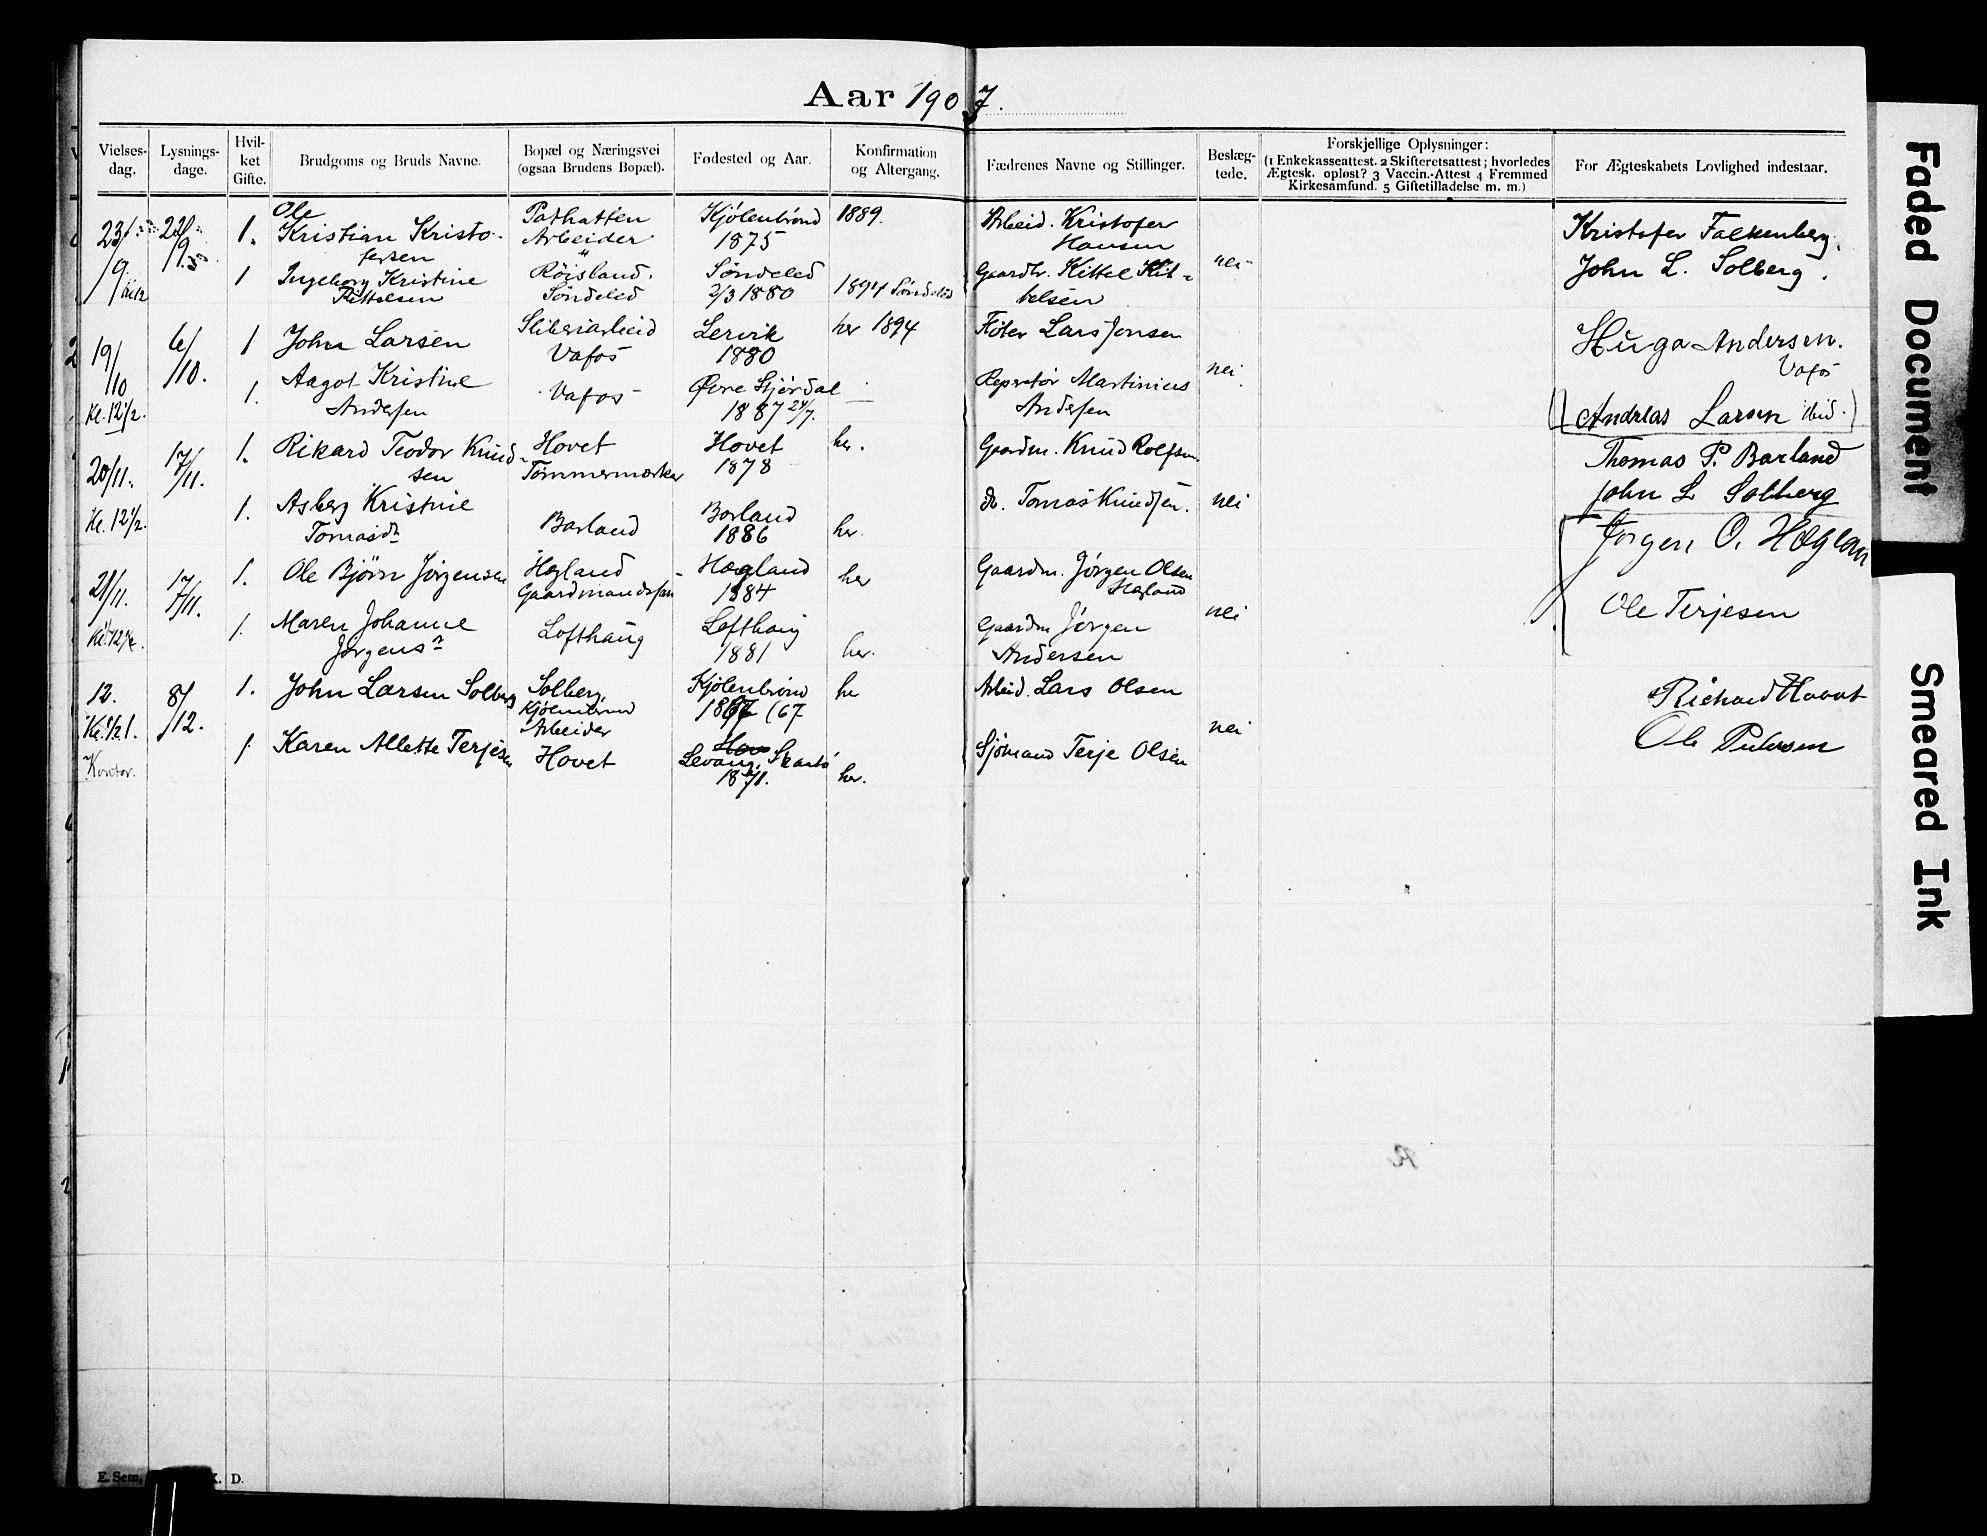 Aar 1907.
Vielses-dag. Lysnings-dage. Hvil-ket Gifte. Brudgoms og Bruds Navne. Bopæl og Næringsvei (ogsaa Brudens Bopæl). Fødested og Aar. Konfirmation og Altergang. Fædrenes Navne og Stillinger. Beslæg-tede. Forskjellige Oplysninger: (1 Enkekasseattest. 2 Skifteretsattest; hvorledes Ægtesk. opløst? 3 Vaccin.-Attest 4 Fremmed Kirkesamfund. 5 Giftetilladelse m. m.) For Ægteskabets Lovlighed indestaar.
23/9 22/9 1. Ole Kristian Kristofersen Arbeider Kjølenbrønd 1875 1889. Arbeid. Kristofer Hansen Kristofer Falkenberg.
1 Ingeborg Kristine Kittelsen Røisland. Søndeled Søndeled 2/3 1880 1894 Søndeled Gaardbr. Kittel Kittelsen nei John L. Solberg.
19/10 6/10. 1 John Larsen Sliberiarbeid Vafos Lervik 1880 her 1894 Fløter Lars Jonsen Hugo Andersen. Vafos
Kl. 12 1/2. 1. Aagot Kristine Andersen Vafos Øvre Stjørdal 1887 24/7. — Martinius Andersen nei (Andreas Larsen ibid.)
20/11. 17/11. 1. Rikard Teodor Knudsen Hovet Tømmermærker Hovet 1878 her. Gaardm. Knud Rolfsen. Thomas P. Barland
Kl. 12 1/2. 1. Asberg Kristine Tomasdn Barland Barland 1886 her. do. Tomas Knudsen. nei John L Solberg
21/11. 17/11. 1. Ole Bjørn Jørgensen Hægland Gaardmandssøn Hægland 1884 her Gaardm. Jørgen Olsen Hægland Jørgen O. Hæglan
1. Maren Johanne Jørgensn Lofthaug Lofthaug 1881 her. Gaardm Jørgen Andersen nei Ole Terjesen
12. 8/12. 1. John Larsen Solberg Solberg, Kjølenbrønd Arbeider Kjølenbrønd 1867 (67 he Arbeid. Lars Olsen Richard Hovet
Kl. 1/2 1. Kontor. 1. Karen Allette Terjesen Hovet Levang, Skaatø 1871. her. Sjømand Terje Olsen nei Ole Pedersen
E. Sem,
K. D.
Faded Document
Smeared Ink